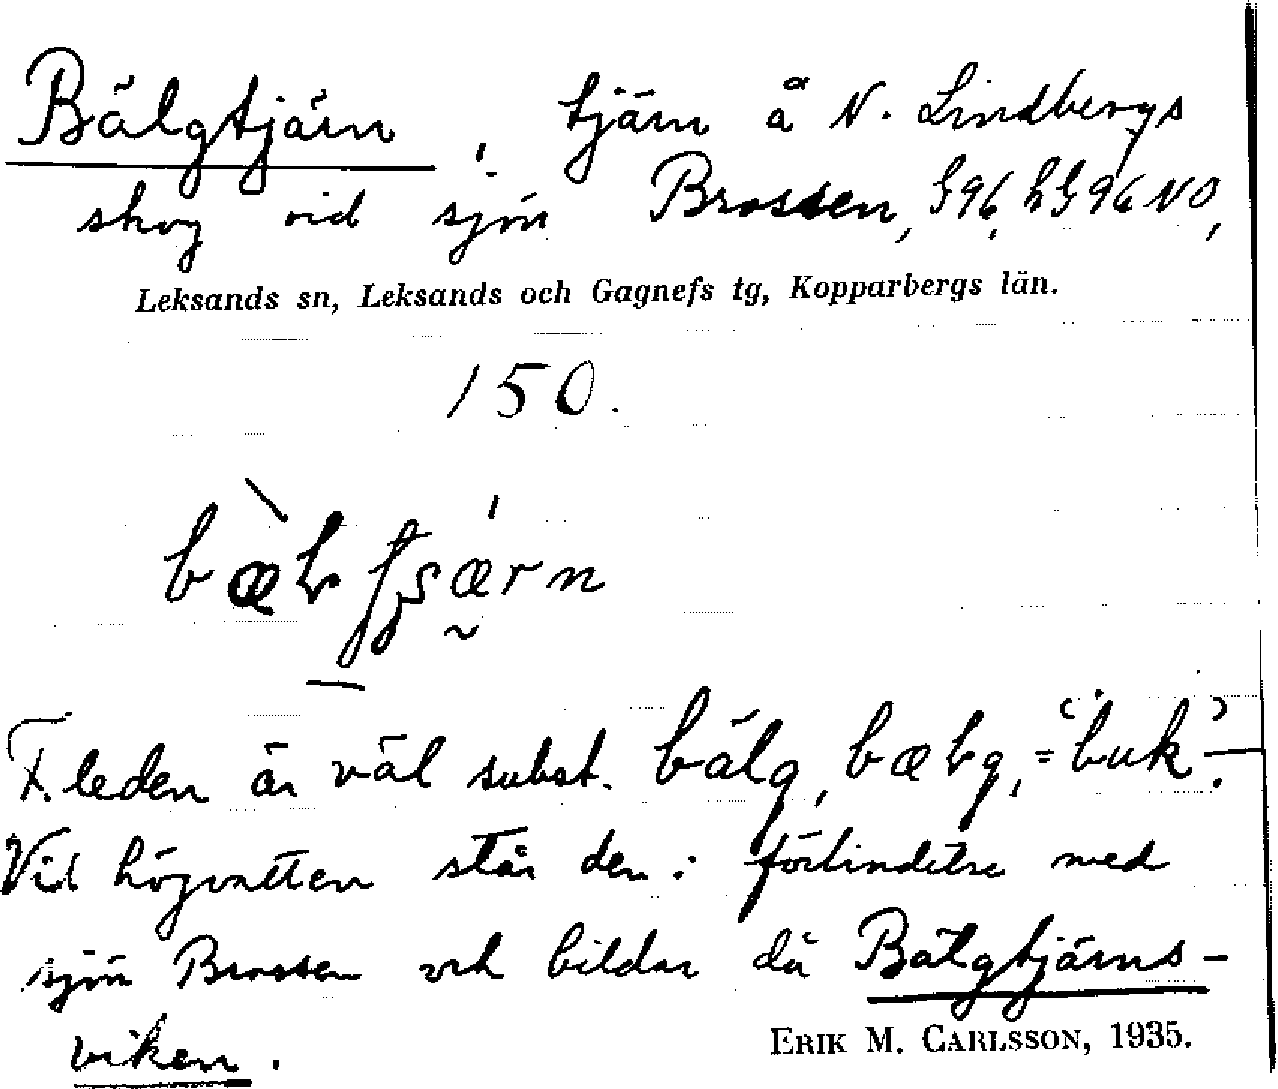 Bälgtjärn, tjärn å N. Lindbergs
skog vid sjön Brossen, G96, hG96NO,
Leksands sn, Leksands och Gagnefs tg, Kopparbergs län.
150.
F. leden är väl subst. bälg, = 'buk'.
Vid högvatten står den i förbindelse med
sjön Brossen och bildar då Bälgtjärns-
viken.
ERIK M. CARLSSON, 1935.